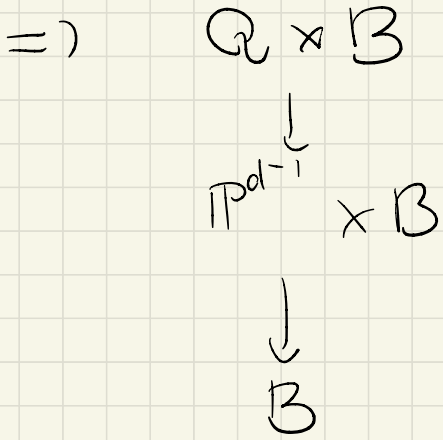 => Q × B
↓
ℙ^{d-1} × B
↓
B